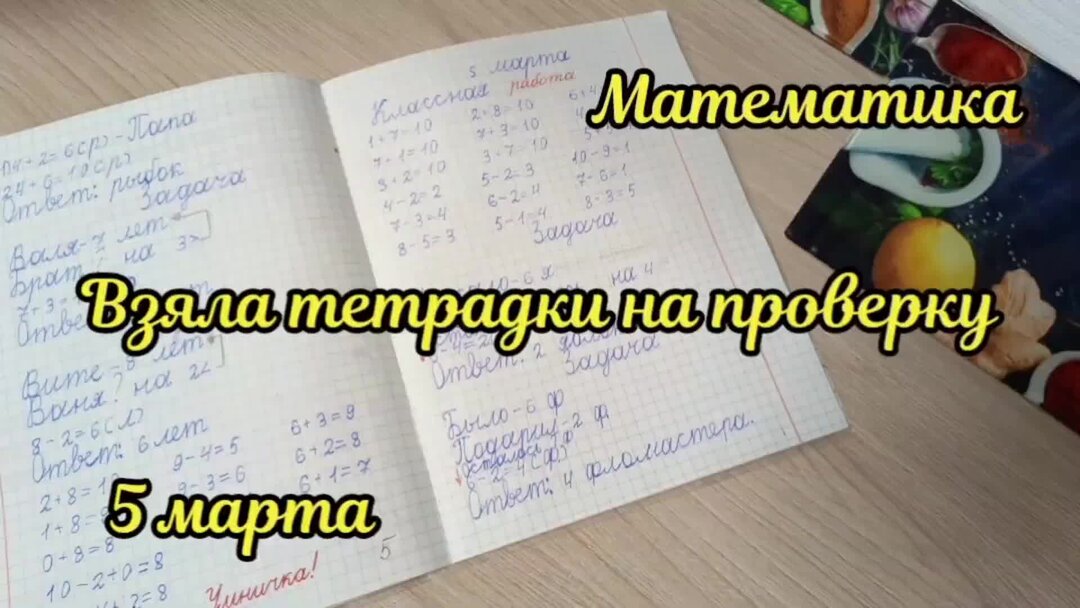 Математика
Взяла тетрадки на проверку
5 марта
4+2=6(р)-Папа
Ответ: рыбок
Задача
Валя-7 лет
Брат
на 3
Вите - 8 лет
Ваня? на 2<
8-2=6(л)
Ответ: 6 лет
9-4=5
6+3=9
9-3=6
6+2=8
6+1=7
0+8=8
10-2+0=8
Умничка!
5
5 марта
Классная работа
1+7=10
2+8=10
7+1=10
7+3=10
9+2=10
3+7=10
10-9=1
4-2=2
5-2=3
7-6=1
7-3=4
6-2=4
8-3=5
8-5=3
5-1=4
Задача
на 4
Ответ: 2
Задача
Было-6 ф
Подарил-2 ф.
Осталось
6-2=4(ф)
Ответ: 4 фломастера.